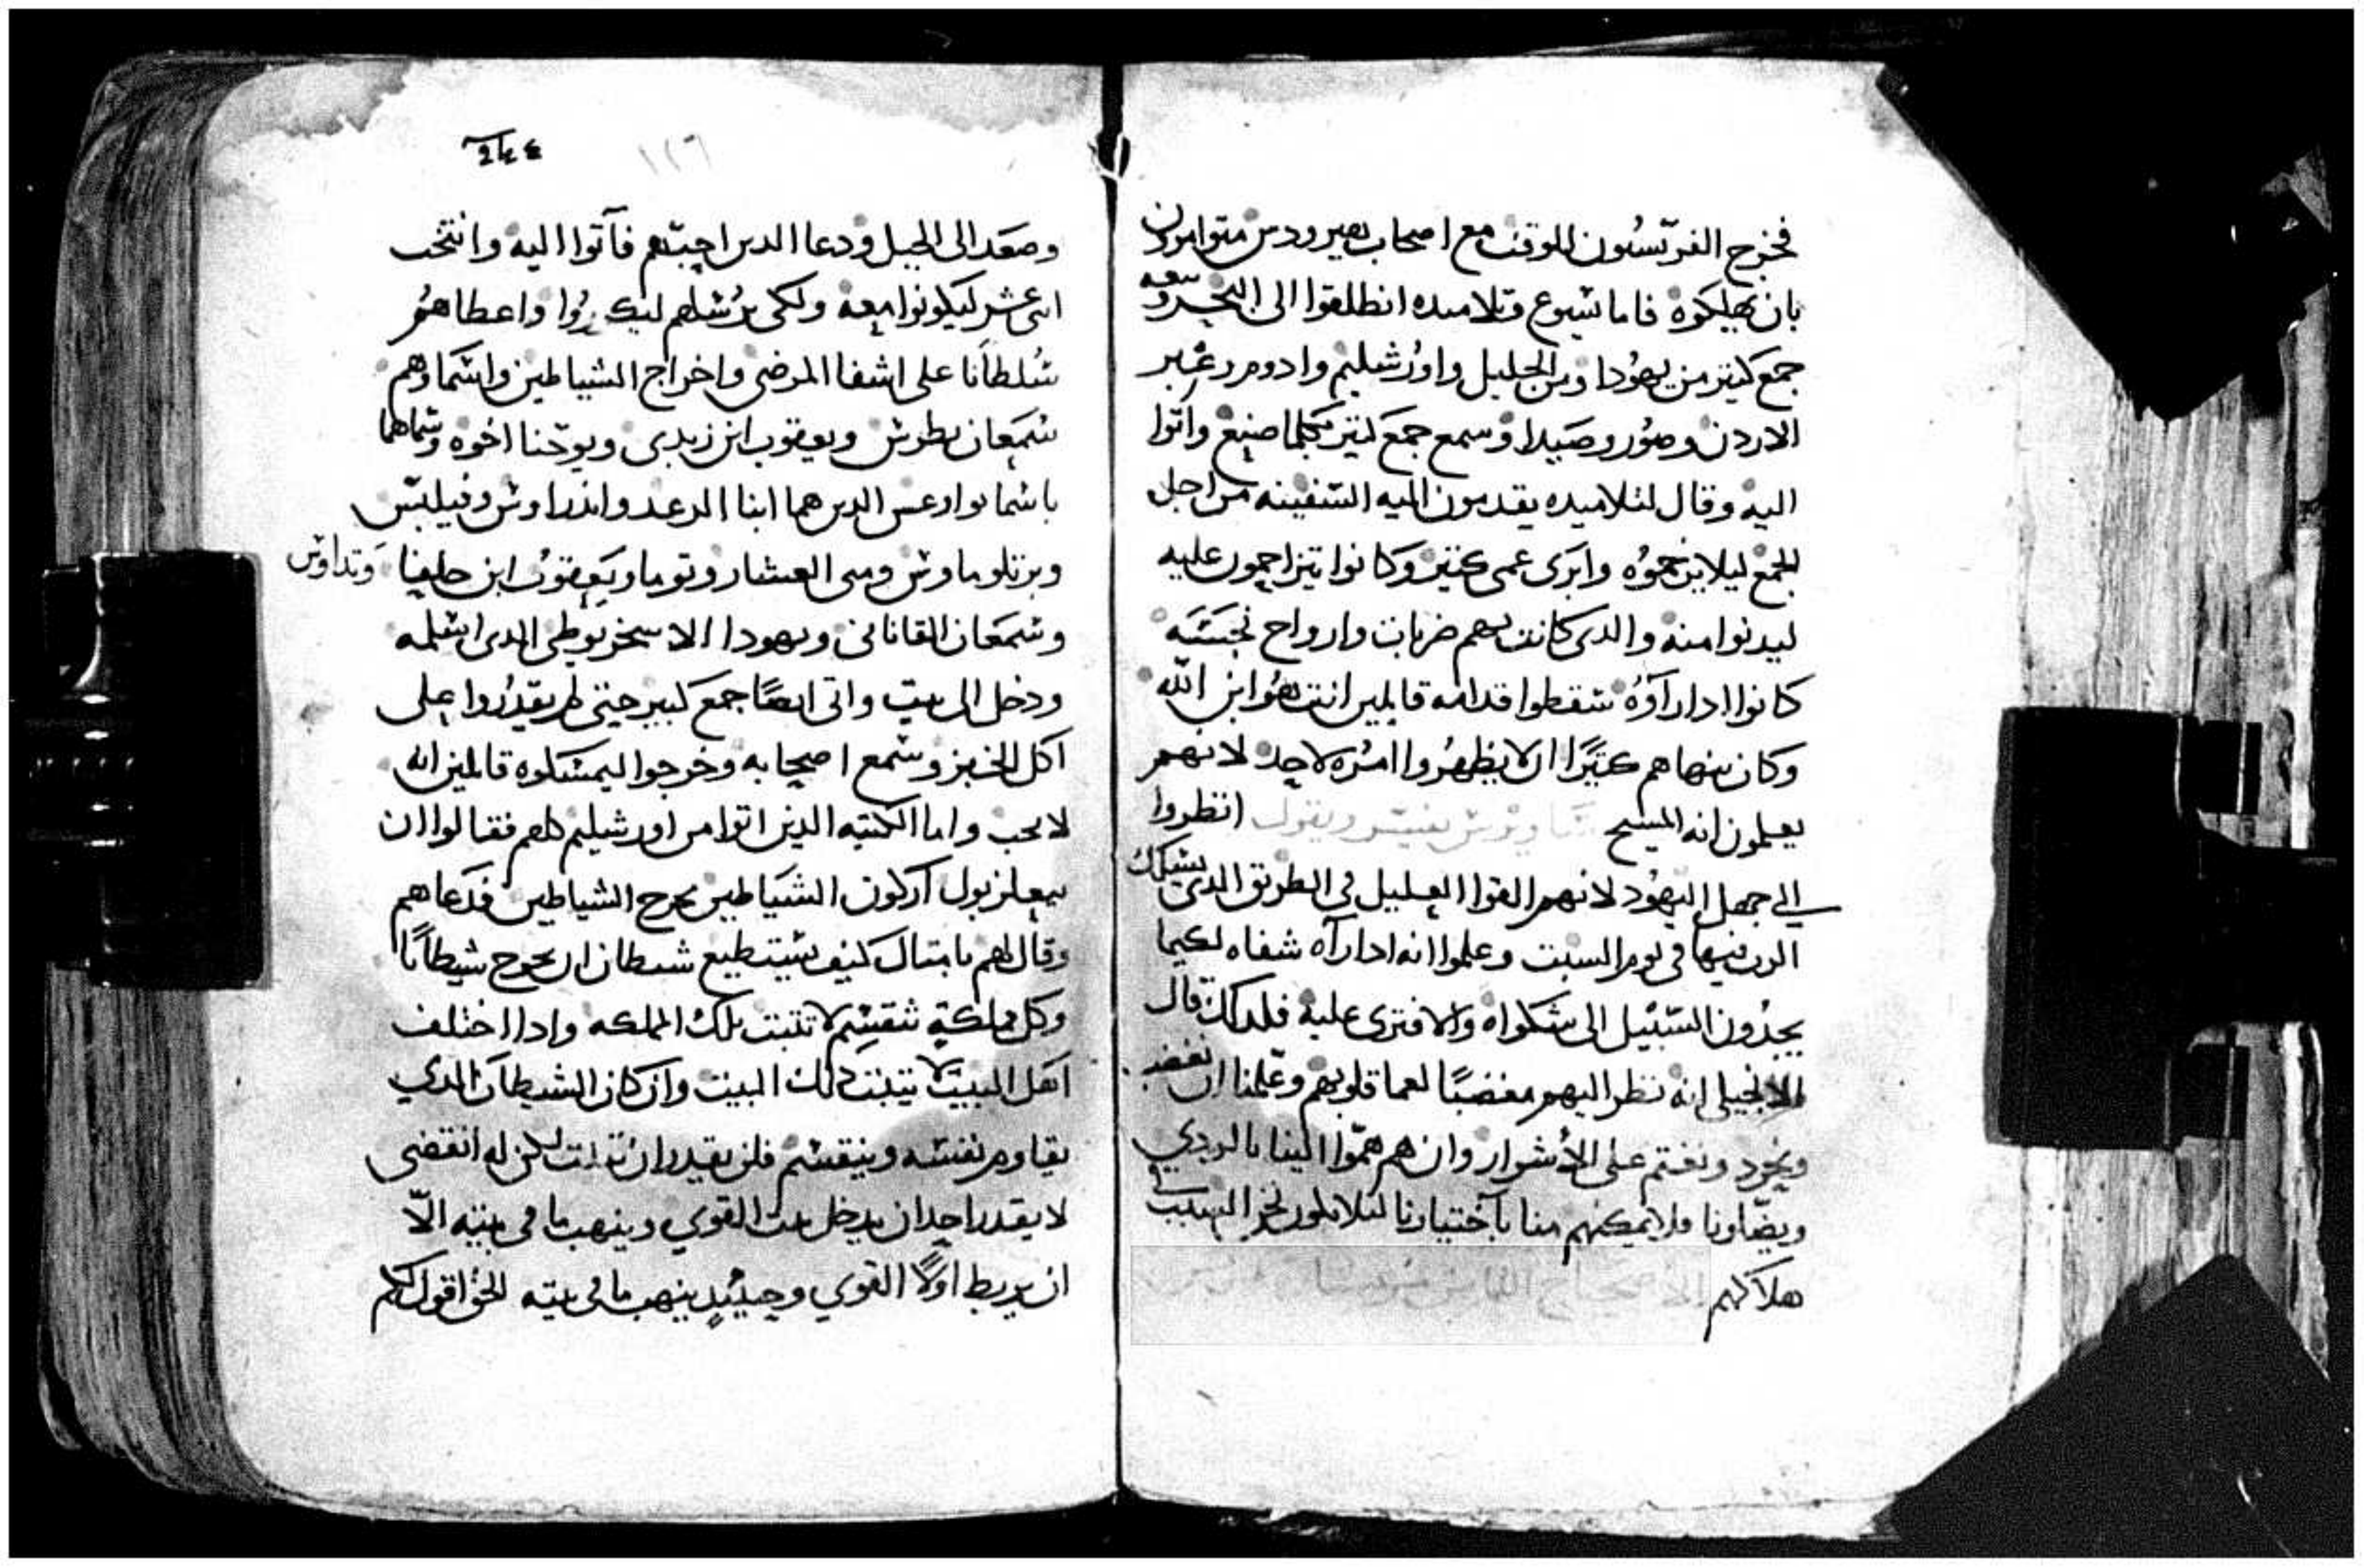 فخرج الفرّيسيون للوقت مع اصحاب هيرودس متوامرون
بان يهلكوه فاما يسوع وتلاميده انطلقوا الى البحر وتبعه
جمع كتير من يهودا ومن الجليل واورشليم وادوم وعبر
الاردن وصور وصيدا وسمع جمع كتير بكلما صنع واتوا
اليه وقال لتلاميده يقدمون اليه السفينه من اجل
الجمع ليلا يزحموه وابرى عمى كتير وكانوا يتزاحمون عليه
ليدنوا منه والدى كانت بهم ضربات وارواح نجسه
كانوا ادا رآوه سقطوا قدامه قايلين انت هو ابن الله
وكان ينهاهم كتيرًا ان لا يظهروا امره لاحد لانهم
يعلمون انه المسيح ويقول انظروا
الى جهل اليهود لانهم القوا العليل في الطريق الدى
فيها فى يوم السبت وعلموا انه ادا رآه شفاه لكيما
يجدون السبيل الى شكواه والافترى عليه فلدلك قال
الانجيلى انه نظر اليهم مغضبًا لعما قلوبهم وعلّمنا ان نغضب
ونحرد ونغتم على الأشرار وان هم همّوا الينا بالردي
فلا نمكنهم منا بآختيارنا لئلا نكون نحن السبب
هلاكهم
١١٦
وصعد الى الجبل ودعا الدين احبّهم فآتوا اليه وانتخب
اتنى عشر ليكونوا معه ولكى يرسلهم ليكرزوا واعطاهم
سُلطانًا على اشفا المرضى واخراج الشياطين واسماوهم
سمعان بطرس ويعقوب ابن زبدى ويوحّنا اخوه وسماهما
باسما بوارعس الدين هما ابنا الرعد واندراوس وفيلبّس
وبرتلوماوس ومتى العشار وتوما ويعقوب ابن حلفا وتداوس
وسمعان القانانى ويهودا الاسخريوطى الدى اسلمه
ودخل الى بيت واتى ايضًا جمع كبير حتى لم يقدروا على
اكل الخبز وسمع اصحابه وخرجوا ليمسكوه قايلين انه
لا يحب واما الكتبه الدين اتوا من اورشليم كلهم فقالوا ان
بيعلزبول آركون الشياطين يخرج الشياطين فدعاهم
وقال لهم بامتال كيف يستطيع شيطان ان يخرج شيطانًا
وكل مملكةٍ تنقسم لا تتبت تلك المملكه وادا اختلف
اهل البيت لا يتبت دلك البيت وان كان الشيطان الدي
يقاوم نفسه وينقسم فلن يقدر ان يتبت لكن له انقضى
لا يقدر احد ان يدخل بيت القوي وينهب ما فى بيته الّا
ان يربط اولًا القوي وحينيدٍ ينهب ما فى بيته الحق اقول لكم